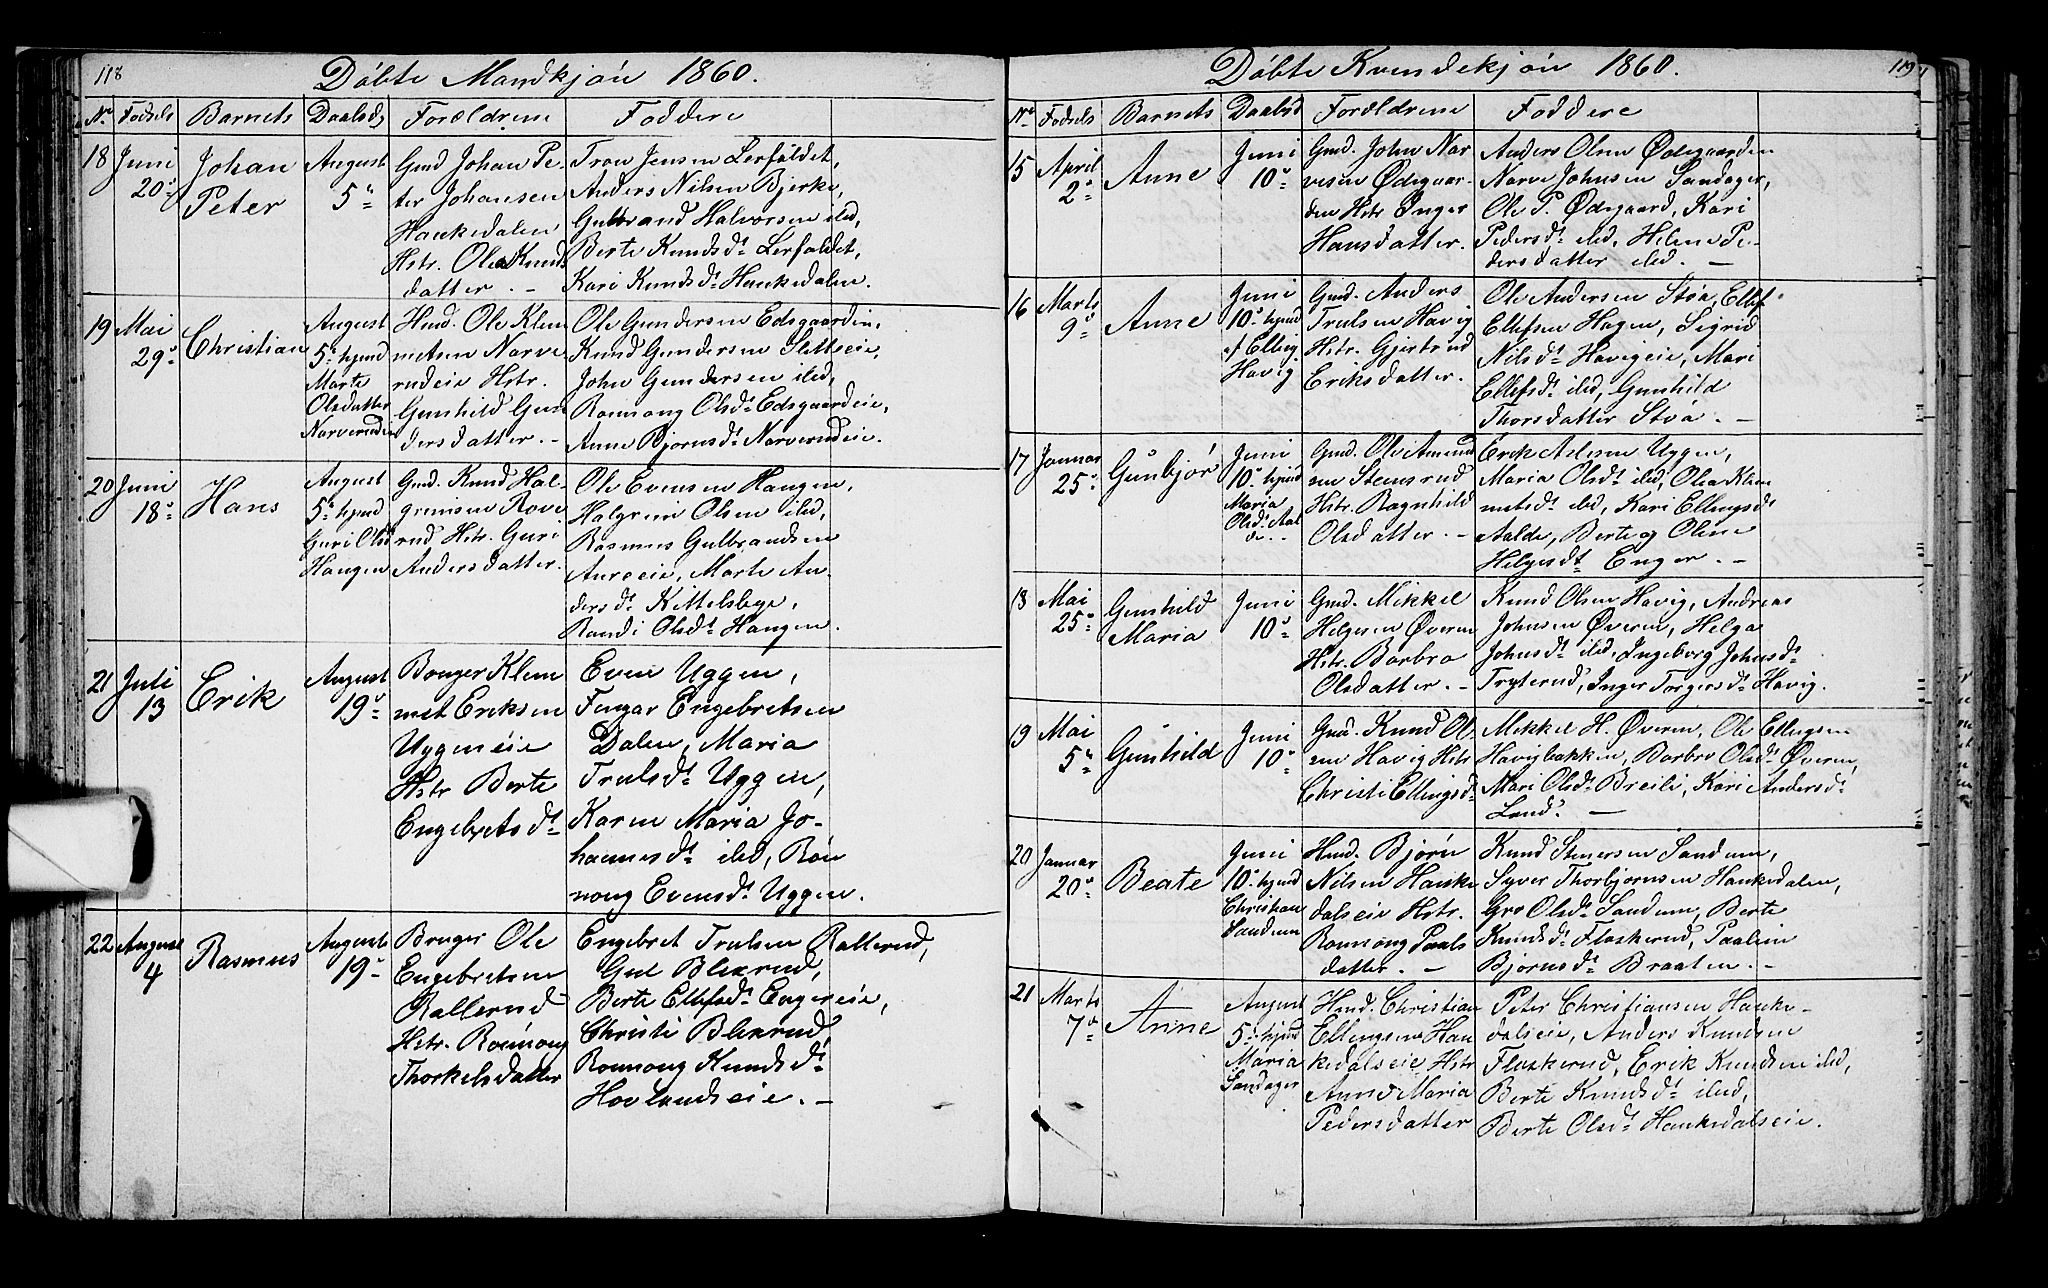 118
Döbte Mandkjön 1860.
No. Födsels Barnets Daabsd, Forældrene Faddere
18 Juni 20de
Johan Peter
August 5te
Gmd Johan Pe-
ter Johansen
Haukedalen
Hstr. Olea Knuds
datter. -
Tron Jensen Lerfaldet,
Anders Nilsen Bjerke,
Gulbrand Halvorsen ibd,
Berte Knudsdt. Lerfaldet,
Kari Knudsdt. Haukedalen.
19 Mai 29de
Christian
August
5te hjmd
Marte
Olsdatter
Narverudeie
Hmd. Ole Klem
metsen Narve
rudeie Hstr.
Gunhild Gun
dersdatter. -
Ole Gundersen Edsgaardeie,
Knud Gundersen Slettseie,
John Gundersen ibd,
Rønnong Olsdt. Edsgaardeie,
Anne Bjørnsdt. Narverudeie.
20 Juni 18de
Hans
August
5te hjmd
Guri Olsd
Haugen
Gmd. Knud Hal-
grimsen Rove
rud Hstr. Guri
Andersdatter.
Ole Evensen Haugen,
Halgrim Olsen ibd,
Rasmus Gulbrandsen
Aureeie, Marte An-
dersdt. Kittelsbye,
Randi Olsdt. Haugen.
21 Juli 13
Erik
August 19de
Bruger Klem
met Eriksen
Uggeneie
Hstr Berte
Engebretsdt.
Even Uggen,
Fingar Engebretsen
Dalen, Maria
Trulsdt. Uggen,
Karen Maria Jo-
hannesdt. ibd, Rön
nong Evensdt. Uggen.
22 August 4
Rasmus
August 19de
Bruger Ole
Engebretsen
Rallerud
Hstr. Rönnong
Thorkelsdatter
Engebret Trulsen Rallerud,
Gul Blexrud,
Berte Ellefsdt. Engereie,
Christi Blexrud,
Rønnong Knudsdt.
Hovlandseie. -
119
Döbte Kvindekjön 1860.
No. Födsels Barnets Daabsd Forældrene Faddere
15 April 2de
Anne
Juni 10de
Gmd. John Nar
vesen Ødegaar-
den Hstr Inger
Hansdatter.
Anders Olsen Ødegaarden
Narve Johnsen Sandager,
Ole P. Ødegaard, Kari
Pedersdt. ibd, Helene Pe-
dersdatter ibd. -
16 Marts 9de
Anne
Juni
10de hjmd
af Elling
Havig
Gmd. Anders
Trulsen Havig
Hstr. Gjertrud
Eriksdatter.
Ole Andersen Stöa, Ellef
Ellefsen Hagen, Sigrid
Nilsdt. Havigeie, Mari
Ellefsdt. ibd, Gunhild
Thorsdatter Stöa. -
17 Januar 25de
Gunbjør
Juni
10de hjmd
Maria
Olsdt. Aal
de. -
Gmd. Ole Amund
sen Stensrud
Hstr. Ragnhild
Olsdatter. -
Erik Aslesen Uggen,
Maria Olsdt. ibd, Olea Klem
metsdt. ibd, Kari Ellingsdt.
Aalde, Berte og Oline
Helgesdt. Enger. -
18 Mai 25de
Gunhild Maria
Juni 10de
Gmd. Mikkel
Helgesen Øveren
Hstr. Barbro
Olsdatter. -
Knud Olsen Havig, Andreas
Johnsen Øveren, Helga
Johnsdt. ibd, Ingeborg Johnsdt.
Tryterud, Inger Torgersdt. Havig.
19 Mai 5te
Gunhild
Juni 10de
Gmd. Knud Ol
sen Havig Hstr
Christi Ellingsdt.
Mikkel H. Øveren, Ole Ellingsen
Havigbakken, Barbro Olsdt. Øveren,
Mari Olsdt. Breili, Kari Andersdt.
Lund. -
20 Januar 20de
Beate
Juni
10de hjmd
Christian
Sandum
Hmd. Bjørn
Nilsen Hauke
dalseie Hstr.
Rønnong Paals
datter. -
Knud Stenersen Sandum,
Syver Thorbjørnsen Haukedalen,
Gro Olsdt. Sandum, Berte
Knudsdt. Flaskerud, Paalin
Bjørnsdt. Braaten. -
21 Marts 7de
Anne
August
5te hjmd
Maria
Sandager
Hmd. Christian
Ellingsen Hau
kedalseie Hstr
Anne Maria
Pedersdatter
Peter Christiansen Hauke-
dalseie, Anders Knudsen
Flaskerud, Erik Knudsen ibd,
Berte Knudsdt. ibd,
Berte Olsdt. Haukedalseie.